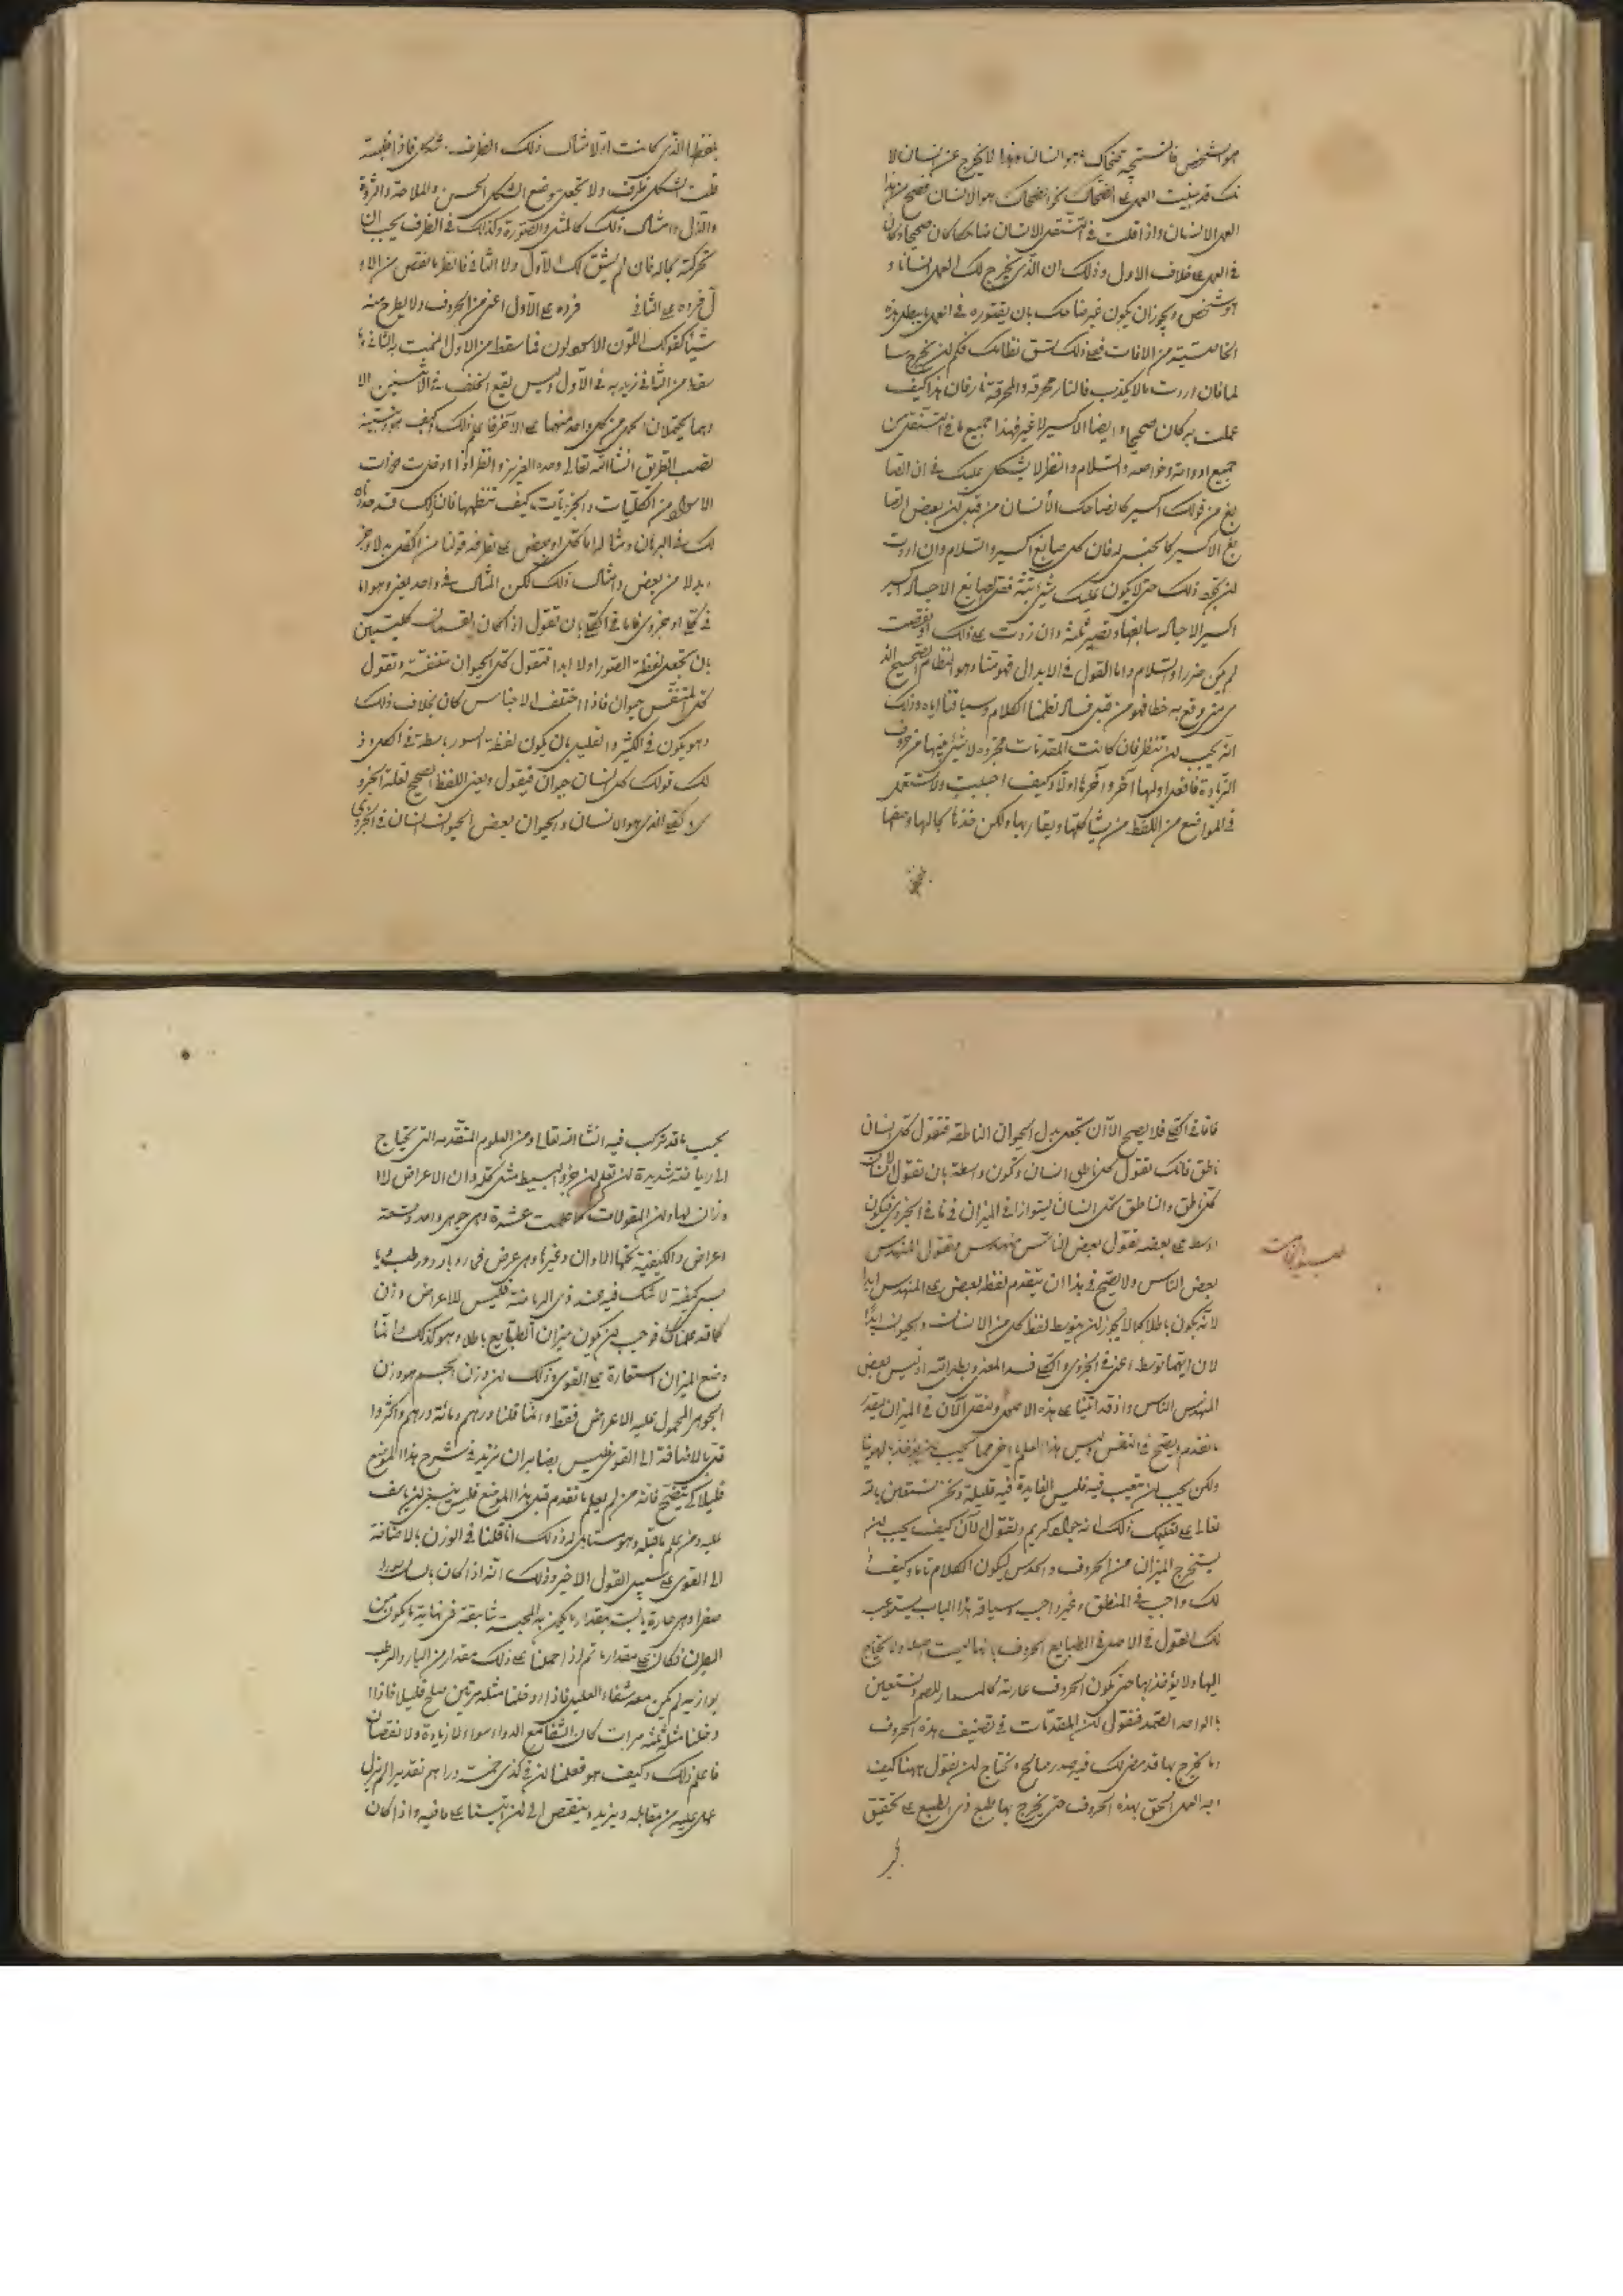 هو الشخص فالنتيجة ضحاك هو انسان وهذا لا يخرج عن انسان لا
نك قد بنيت العمل على الضحاك نحو الضحاك هو الانسان فصح من هذا
العمل الانسان واذا قلت في التنقل الانسان ضاحك كان صحيحا وكان
في العمل على خلاف الاول وذلك ان الذي يخرج لك العمل انسانا و
هو شخص ويجوز ان يكون غير ضاحك بان يعتوره في العمل ما يبطل هذه
الخاصية من الافات فعلى ذلك نسق نظامك فكم لن يخرج سا
لما فان اردت ما لا يكذب فالنار محرقة والمحرقة نار فان هذا كيف
عملت به كان صحيحا وايضا الاكسير لا غير فهذا جميع ما في التنقل من
جميع ادواته وخواصه والسلام وانظر لا يشكل عليك في ان الصا
بغ من قولك اكسير كالضاحك الانسان من قبل لن بعض الصا
بغ الاكسير كالجنس له فان كل صابغ اكسير والسلام وان اردت
لن تحصر ذلك حتى لا يكون عليك شيء بتة فقل لصابغ الاجساد اكسير
اكسير الاجساد صابغها وتصير ثلثة وان زدت على ذلك او نقصت
لم يكن ضررا والسلام واما القول في الابدال فهو مثنا وهو النظام الصحيح الذ
ي متى وقع به خطا فهو من قبل فساد نظمنا الكلام وسياقتنا اياه وذلك
انه يجب لن تنظر فان كانت المقدمات مجردة لا شيء فيها من حروف
الزيادة فاجعل اولها آخر وآخرها اولا وكيف احببت ولا تستعمل
في المواضع من اللفظ من يشاكلها ويقاربها ولكن خذها بحالها وبعضها
بلفظها الذي كانت اولا مثال ذلك الظرف شكل فاذا قلبته
قلت الشكل ظرف ولا تجعل موضع الشكل الحسن والملاحة والثروة
والدل وامثال ذلك كالمثل والصورة وكذلك في الظرف يجب ان
تتركه بحاله فان لم يشق لك الاول ولا الثاني فانظر ما نقص من الاو
ل فرده على الثاني فرده على الاول اعني من الحروف ولا يطرح منه
شيئا كقولك اللون الاسود لون فما سقط من الاول اتممت به الثاني وما
سقط من الثاني فزيد به في الاول وليس يقع الخلف في الاثنين الا
وهما يحتملان الحمل من كل واحد منهما على الآخر فاعلم ذلك وكيف هو وتبينه
تصب الطريق انشا الله تعالى وحده العزيز وانظر اذا ادخلت ذوات
الاسوار من الكليات والجزئيات كيف تنظمها فان ذلك قد حددناه
لك في البرهان ومثاله اما كل او بعض على نظر فه قولنا من الكل بدلا وجز
ء بدلا من بعض وامثال ذلك لكن المثال في واحد يغني وهو اما
في كلي او جزوي فاما في الكلي بان تقول اذا كان القسمان كليتين
بان تجعل لفظة السور اولا ابدا فتقول كل الحيوان متنفس وتقول
كل المتنفس حيوان فاذا اختلف الاجناس كان بخلاف ذلك
وهو يكون في الكثير والقليل بان يكون لفظة السور باسطة في الكل وذ
لك قولك كل انسان حيوان فيقول ويعني اللفظ الصحيح لعلة الجزو
ي كلي الذي هو الانسان والحيوان بعض الحيوان انسان في الجزوي
فاما في الكلي فلا يصح الا ان تجعل بدل الحيوان الناطقة فتقول كل انسان
ناطق فانك تقول كل ناطق انسان وتكون واسطة بان تقول الانسان
كل ناطق والناطق كل انسان ليتوازا في الميزان فاما في الجزوي فيكون
اوسط على بعضه تقول بعض الناس مهندس وتقول المهندس
بعض الناس ولا يصح في هذا ان يتقدم لفظ البعض على المهندس ابدا
لانه يكون باطلا كما لا يجوز لن يتوسط لفظ كل من الانسان والحيوان ابدا
لان ايتهما توسط اعني في الجزوي والكلي فسد المعنى وبطل انه اذ ليس بعض
المهندس الناس واذ قد اتينا على هذه الاصول ونتقل الان في الميزان بقدر
ما نقدم ويصح في النفس وليس هذا العلم باخر مما يجب لن يؤخذ بالهوينا
ولكن يجب لن يتعب فيه فليس الفايدة فيه قليلة ونحن نستعين بالله
تعالى على تعليمك ذلك انه جواد كريم ونقول الآن كيف يجب لن
يستخرج الميزان من الحروف والحدس ليكون الكلام تاما وكيف ذ
لك واجب في المنطق وغير واجب وسياقة هذا الباب يستوعب
لك القول في الاصل في الطبايع الحروف بانها ليست اصلا ولا يحتاج
اليها ولا يؤخذ بها حتى يكون الحروف عارية كالمسمار للصم ونستعين
بالواحد الصمد فنقول لن المقدمات في تصنيف هذه الحروف
وما يخرج بها قد مضى لك فيه صدر صالح ونحتاج لن نقول ههنا كيف
وجه العمل الحق بهذه الحروف حتى يخرج بها طبع ذي الطبع على تحقيق
يجب ما قد تركب فيه انشا الله تعالى ومن العلوم المتقدمة التي تحتاج
الى رياضة شديدة لن تعلم لن جزو البسيط مثل كله وان الاعراض لا ا
وزان لها ولن المقولات كما علمت عشرة وهي جوهر واحد وتسعة
اعراض والكيفية تحتها الالوان وغيرها وهي عرض في حار وبارد ورطب ويا
بس كيفية لا شك فيه عند ذي الرياضة فليس للاعراض وزن
كما قد علمناك فوجب لن يكون ميزان الطبايع باطلا وهو كذلك وانما
وضع الميزان استعارة على القوي وذلك لن وزن الجسم هو وزن
الجوهر المحمول عليه الاعراض فقط وانما قلنا درهم ومائة درهم واكثر وا
قل بالاضافة الى القوي فليس بضاير ان نزيد في شرح هذا الموضع
قليلا كي يتضح فانه من لم يعلم ما تقدم قبل هذا الموضع فليس ينبغي لن ياسف
عليه ومن علم ما قبله وهو مستاهل له وذلك انا قلنا في الوزن بالاضافة
الى القوي على سبيل القول الاخير وذلك انه اذا كان بانسان
صفرا وهي حارة يابسة بمقدار ما يكون به المحبة شايعة في نهاية ما يكون من
البطن فكان على مقدار ما ثم اذا حملنا على ذلك مقدار من البارد الرطب
يوازيه لم يكن معه شفاء العليل فاذا ادخلنا مثله مرتين صلح قليلا فاذا ا
دخلنا مثله ثلثة مرات كان الشفا مع الدواء سواء لا زيادة ولا نقصان
فاعلم ذلك وكيف هو فعلمنا لن في كذى خمسة دراهم تقديرا لم نزل
عمل عليه من مقابله ويزيد وينقص الى لن اتينا على ما فيه واذا كان